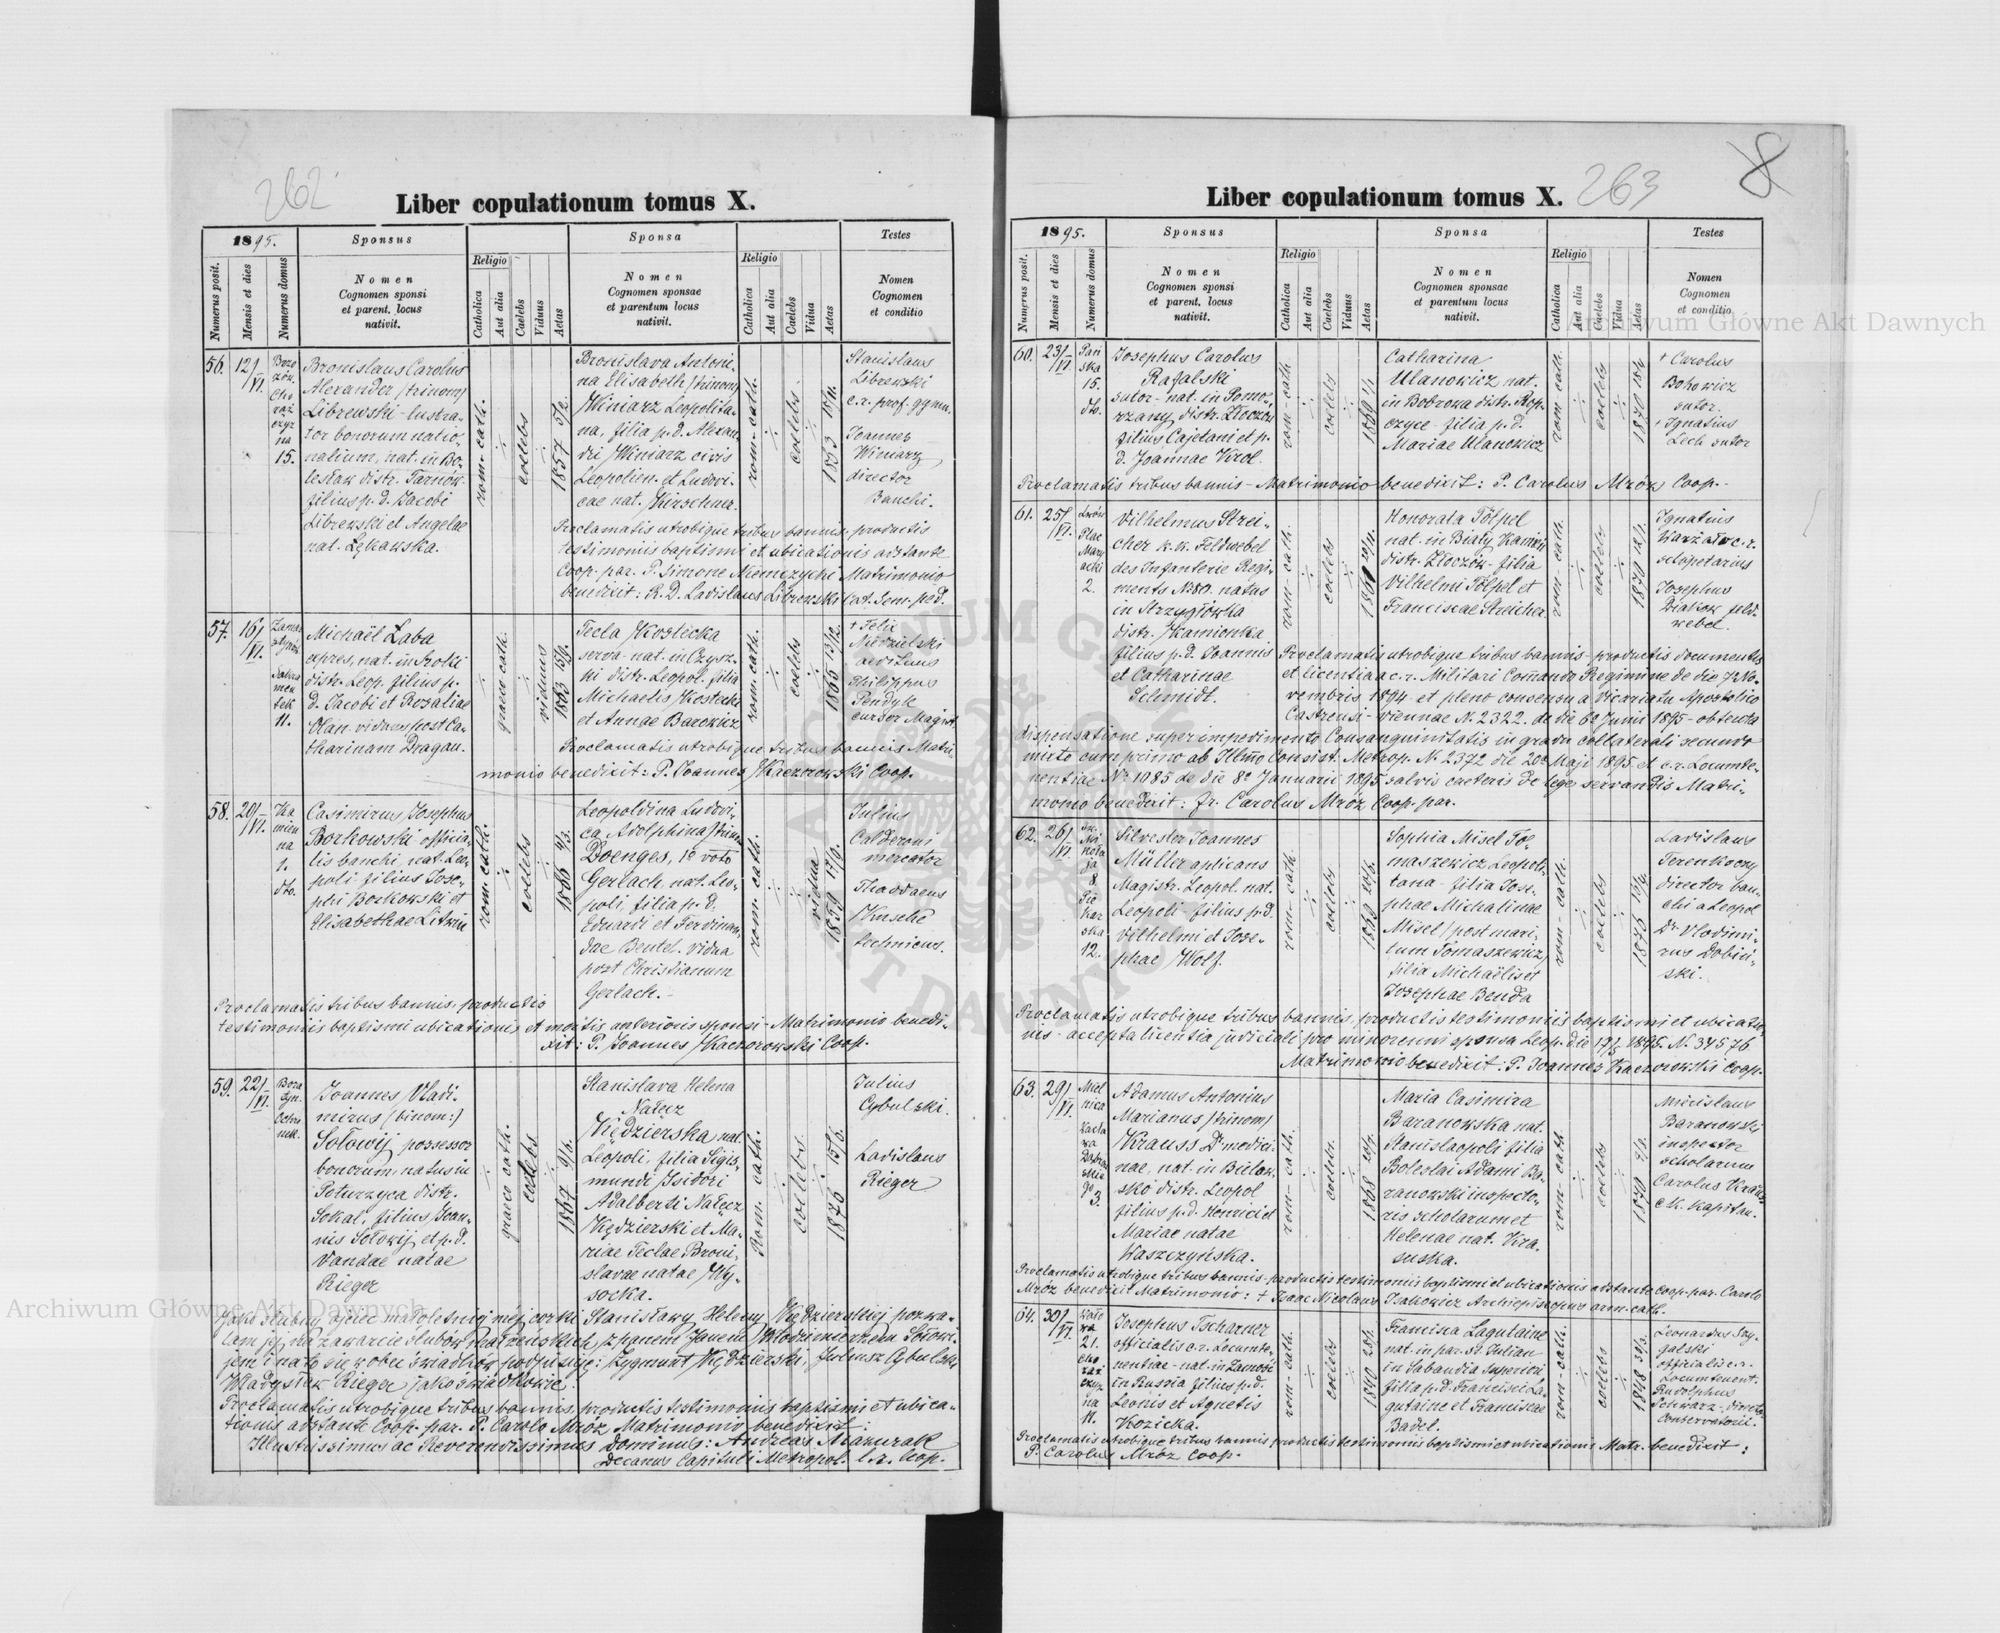 262
Liber copulationum tomus X.
1895.
Sponsus
Sponsa
Testes
Numerus posit.
Mensis et dies
Numerus domus
Nomen
Cognomen sponsi
et parent. locus
nativit.
Religio
Catholica
Aut alia
Caelebs
Viduus
Aetas
Nomen
Cognomen sponsae
et parentum locus
nativit.
Religio
Catholica
Aut alia
Caelebs
Vidua
Aetas
Nomen
Cognomen
et conditio
56.
12/VI.
15.
Bronislaus Carolus
Alexander /trinom/
Librewski - lustra-
tor bonorum natio-
nalium, nat. in Bo-
lesław distr. Tarnów
filius p. d. Jacobi
Librewski et Angelae
nat. Łękawska.
rom. cath.
coelebs
1857
Bronislava Antoni-
na Elisabeth /trinom/
Winiarz Leopolita-
na, filia p. d. Alexan-
dri Winiarz civis
Leopolien. et Ludovi-
cae nat. Kirschner.
rom. cath.
coelebs
Stanislaus
Librewski
c. r. prof. gymn.
Joannes
Winiarz
director
Banchi.
Proclamatis utrobique tribus bannis, productis
testimoniis baptismi et ubicationis adstante
Coop. par. P. Simone Niemczycki Matrimonio
benedixit: R. D. Ladislaus Librewski Cat. Sem. ped.
57.
16/VI.
11.
Michaël Łaba
nat. in Srokı
distr. Leop. filius p.
d. Jacobi et Rosaliae
Olan viduus post Ca-
tharinam Dragan.
graeco cath.
viduus
1863
Tecla Kostecka
serva - nat. in Czysz-
ki distr. Leopol. filia
Michaelis Kostecki
et Annae Barowicz
rom. cath.
coelebs
1865
+ Felix
Niedzielski
aedituus
Philippus
Pendyk
cursor Magist.
Proclamatis utrobique tribus bannis Matri-
monio benedixit: P. Joannes Kaczorowski Coop.
58.
20/VI.
Kamienna
1.
dto.
Casimirus Josephus
Borkowski officia-
lis banchi, nat. Leo-
poli filius Jose-
phi Borkowski et
Elisabethae Litwin
rom. cath.
coelebs
1866
Leopoldina Ludovi-
ca Adolphina /trinom/
Doenges, 1o voto
Gerlach nat. Leo-
poli, filia p. d.
Eduardi et Ferdinan-
dae Beutel. vidua
post Christianum
Gerlach.
rom. cath.
vidua
1859
Julius
Calderoni
mercator
Thaddaeus
Kusché
technicus.
Proclamatis tribus bannis, productis
testimoniis baptismi ubicationis et mortis anterioris sponsi - Matrimonio benedi-
xit: P. Joannes Kaczorowski Coop.
59.
22/VI.
Joannes Vladi-
mirus /binom:/
Sołowij possessor
bonorum, natus in
Poturzyca distr.
Sokal, filius Joan-
nis Sołowij et p. d.
Vandae natae
Rieger
graeco cath.
coelebs
1867
Stanislava Helena
Nałęcz
Kędzierska nat.
Leopoli, filia Sigis-
mundi Isidori
Adalberti Nałęcz
Kędzierski et Ma-
riae Teclae Broni-
slavae natae Wy-
socka.
Rom. cath.
coelebs
1876 15/6.
Julius
Cybulski.
Ladislaus
Rieger
Jako ślubny ojciec małoletniej mej córki Stanisławy Heleny Kędzierskiej pozwa-
lam jej na zawarcie ślubów małżeńskich z panem Janem Włodzimierzem Sołowi-
jem i na to się w obec świadków podpisuję: Zygmunt Kędzierski, Juliusz Cybulski,
Władysław Rieger jako świadkowie.
Proclamatis utrobique tribus bannis, productis testimoniis baptismi et ubica-
tionis adstante Coop. par. P. Carolo Mróz Matrimonio benedixit:
Illustrissimus ac Reverendissimus Dominus: Andreas Mazurak
Decanus Capituli Metropol. l. r. Leop.
263
8
Liber copulationum tomus X.
1895.
Sponsus
Sponsa
Testes
Numerus posit.
Mensis et dies
Numerus domus
Nomen
Cognomen sponsi
et parent. locus
nativit.
Religio
Catholica
Aut alia
Caelebs
Viduus
Aetas
Nomen
Cognomen sponsae
et parentum locus
nativit.
Religio
Catholica
Aut alia
Caelebs
Vidua
Aetas
Nomen
Cognomen
et conditio
60.
23/VI.
Pań
ska
15.
dto.
Josephus Carolus
Rafalski
sutor - nat. in Pomo-
rzany, distr. Złoczów
filius Cajetani et p.
d. Joannae Krol.
rom - cath.
coelebs
1869
Catharina
Ulanowicz nat.
in Bobrowa distr. Rop-
czyce - filia p. d.
Mariae Ulanowicz
rom - cath.
coelebs
1870
+ Carolus
Bohowicz
sutor.
+ Ignatius
Lech sutor
Proclamatis tribus bannis - Matrimonio benedixit: P. Carolus Mróz Coop. -
61.
25/VI.
Lwów
Plac
Mary
acki
2.
Vilhelmus Strei-
cher k. k. Feldwebel
des Infanterie Regi-
ments No 80. natus
in Strzygłówka
distr. Kamionka
filius p. d. Joannis
et Catharinae
Schmidt.
rom - cath.
coelebs
Honorata Pölpel
nat. in Biały Kamień
distr. Złoczów - filia
Vilhelmi Pölpel et
Franciscae Streicher
rom - cath.
coelebs
1870
Ignatius
c. r.
sclopetarius
Josephus
feld-
webel.
Proclamatis utrobique tribus bannis - productis documentis
et licentia a c. r. Militari Comando Regimine de die 7 No-
vembris 1894 et pleno consensu a Vicariatu Apostolico
Castrensi - Viennae N. 2322. de die 6a Junii 1895 - obtenta
dispensatione super impedimento Consanguinitatis in gradu collaterali secundo
mixto cum primo ab Illmo Consist. Metrop. N. 2372 die 20a Maji 1895 et c. r. Locumte-
nentiae No 1085 de die 8a Januarii 1895 salvis caeteris de lege servandis Matri-
monio benedixit: fr. Carolus Mróz Coop. par.
62.
26/VI.
8.
Pie
kar
ska
12.
Silvester Joannes
Müller aplicans
Magistr. Leopol. nat.
Leopoli - filius p. d.
Vilhelmi et Jose-
phae Wolf.
rom - cath.
coelebs
1859
Sophia Misel To-
maszewicz Leopoli-
tana - filia Jose-
phae Michalinae
Misel /post mari-
tum Tomaszewicz/
filia Michaëlis et
Josephae Benda
rom - cath.
coelebs
1876
Ladislaus
Terenkoczy
director ban-
chi a Leopol
Dr. Vlodimi-
rus Dobiń-
ski.
Proclamatis utrobique tribus bannis, productis testimoniis baptismi et ubicatio-
nis - accepta licentia judiciali pro minorenni sponsa Leop. die 1895. N. 34576
Matrimonio benedixit: P. Joannes Kaczorowski Coop.
63.
29/VI.
Miel
nica
3.
Adamus Antonius
Marianus /trinom/
Krauss Dr medici-
nae, nat. in Bielow-
sko distr. Leopol
filius p. d. Henrici et
Mariae natae
Waszczyńska.
rom - cath.
coelebs.
1868
Maria Casimira
Baranowska nat.
Stanislaopoli filia
Boleslai Adami Ba-
ranowski inspecto-
ris scholarum et
Helenae nat. Kra-
suska.
rom - cath.
coelebs
1870
Miecislaus
Baranowski
inspector
scholarum
Carolus Krauss
c. k. kapitan.
Proclamatis utrobique tribus bannis - productis testimoniis baptismi et ubicationis adstante coop. par. Carolo
Mróz benedixit Matrimonio: + Isaac Nicolaus Isakowicz Archiepiscopus arm. cath.
64.
30/VI.
Wało
wa
21.
11.
Josephus Tscharner
officialis c. r. Locumte-
nentiae - nat. in Zamość
in Russia filius p. d.
Leonis et Agnetis
Kozicka.
rom - cath.
coelebs
1840
Francisca Lagutaine
nat. in par. St. Julian
in Sabaudia superiori
filia p. d. Francisci La-
gutaine et Franciscae
Badel.
rom - cath.
coelebs
1848
Leonardus Szy-
galski
officialis c. r.
Locumtenent.
Rudolphus
Schwarz - director
Conservatorii.
Proclamatis utrobique tribus bannis productis testimoniis baptismi et ubicationis Matr. benedixit:
P. Carolus Mróz Coop.
Archiwum Główne Akt Dawnych
Archiwum Główne Akt Dawnych
ARCHIWUM GŁÓWNE AKT DAWNYCH